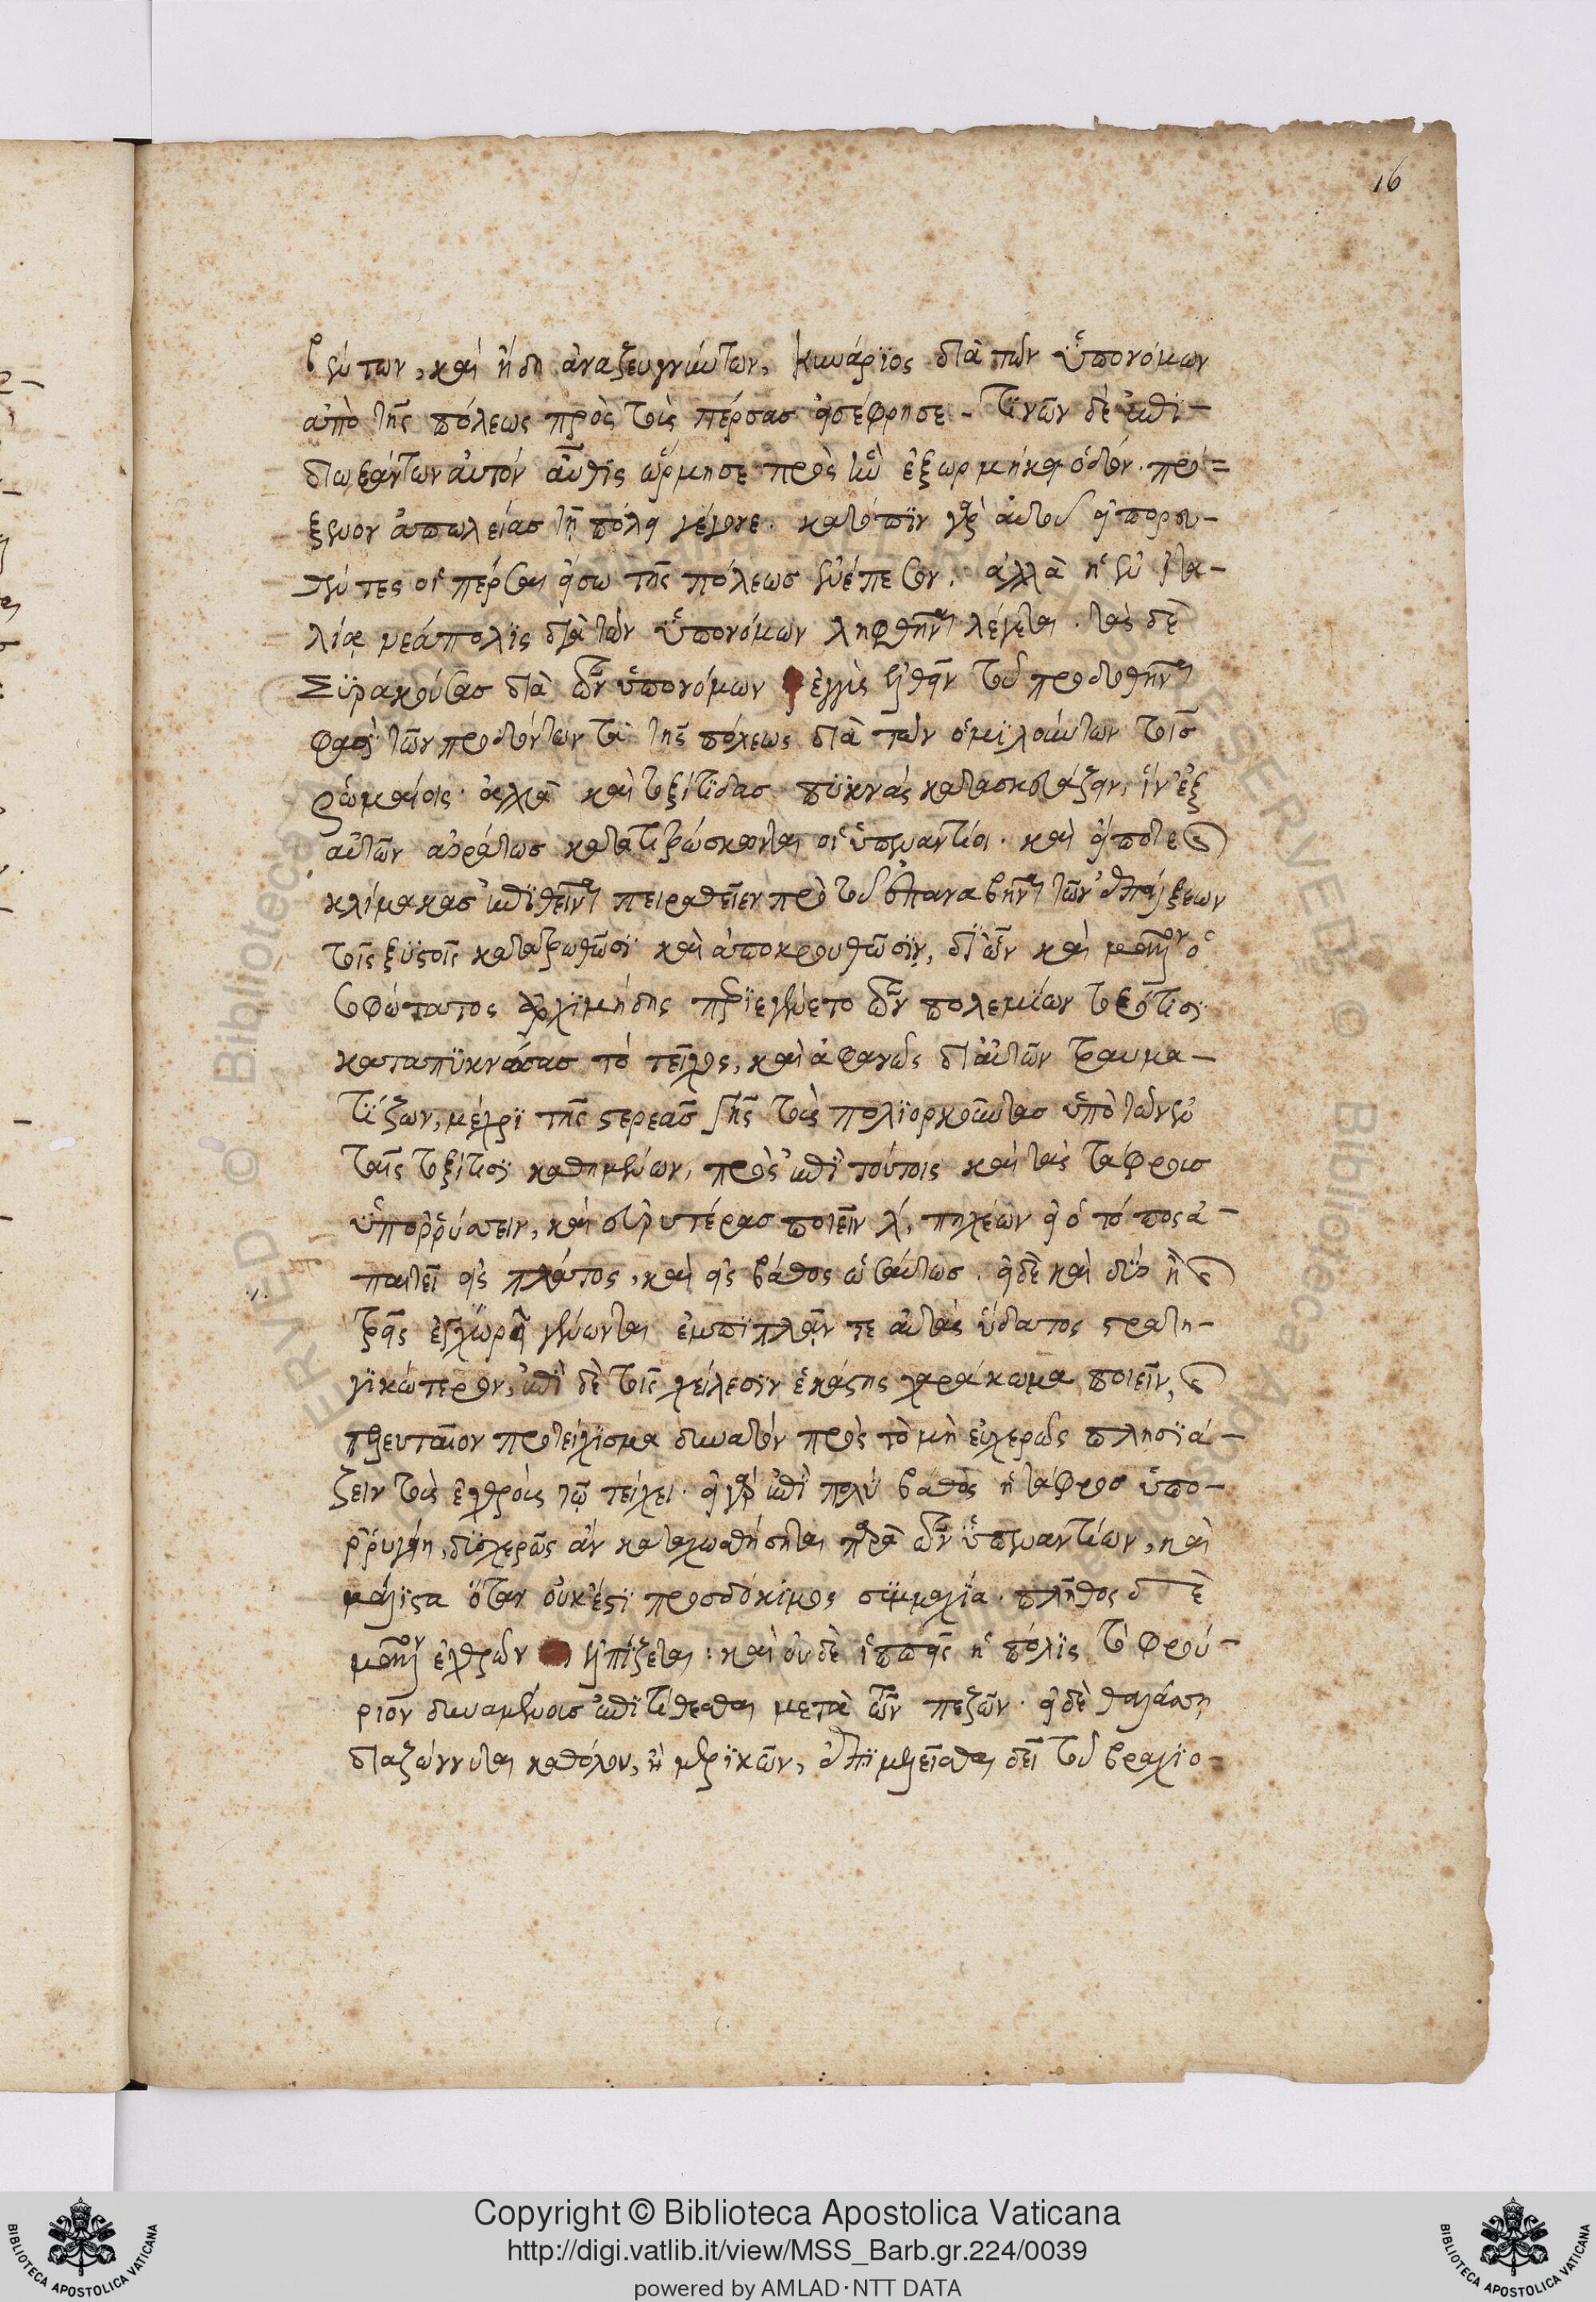 16
των, καὶ ἤδη ἀναζευγνύντων, κυνάριος διὰ τῶν ὑπονόμων
ἀπὸ τῆς πόλεως πρὸς τοὺς πέρσας εἰσέφρησε. τινῶν δὲ ἐπι-
διωξάντων αὐτὸν αὖθις ὥρμησε πρὸς ἣν ἐξώρμηκε ὁδόν. πρό=
ξενον ἀπωλείας τῇ πόλει γέγονε. κατόπιν γὰρ αὐτοῦ εἰσπορευ-
θέντες οἱ πέρσαι εἴσω τῆς πόλεως ἐνέπεσον. ἀλλὰ ἡ ἐν ἰτα-
λίᾳ νεάπολις διὰ τῶν ὑπονόμων ληφθῆναι λέγεται. τὰς δὲ
Συρακούσας διὰ τῶν ὑπονόμων ἐγγὺς ἐλθεῖν τοῦ προδοθῆναι
φασὶ τῶν προδόντων τὰ τῆς πόλεως διὰ τῶν ὁμιλούντων τοῖς
ῥωμαίοις. ἀλλὰ καὶ τοξίτιδας πυκνὰς κατασκευάζειν, ἵν' ἐξ
αὐτῶν ἀοράτως κατατιτρώσκωνται οἱ ὑπεναντίοι. καὶ εἴποτε
κλίμακας ἐπιθεῖναι πειραθεῖεν πρὸ τοῦ ἐπαναβῆναι τῶν ἐπάλξεων
τοῖς ξυστοῖς κατατρωθῶσι καὶ ἀποκρουσθῶσιν, δι' ὧν καὶ μόνον ὁ
σοφώτατος ἀρχιμήδης περιεγένετο τῶν πολεμίων τοξότισι
καταπυκνάσας τὸ τεῖχος, καὶ ἀφανῶς δι' αὐτῶν τραυμα-
τίζων, μέχρι τῆς στερεᾶς γῆς τοὺς πολιορκοῦντας ὑπὸ τῶν ἐν
ταῖς τοξίτισι καθημένων, πρὸς ἐπὶ τούτοις καὶ τὰς τάφρους
ὑπορρύσσειν, καὶ εὐρυτέρας ποιεῖν λ, πηχέων εἰ ὁ τόπος ἀ-
παιτεῖ εἰς πλάτος, καὶ εἰς βάθος ὡσαύτως. εἰ δὲ καὶ δύο ἢ
τρεῖς ἐγχωρεῖ γένωνται ἐμπιπλᾶν τε αὐτὰς ὕδατος στρατη-
γικώτερον, ἐπὶ δὲ τοῖς χείλεσιν ἑκάστης χαράκωμα ποιεῖν,
τελευταῖον προτείχισμα δυνατὸν πρὸς τὸ μὴ εὐχερῶς πλησιά-
ζειν τοὺς ἐχθροὺς τῷ τείχει. εἰ γὰρ ἐπὶ πολὺ βάθος ἡ τάφρος ὑπο-
ρρυγῇ, δυσχερῶς ἂν καταχωσθήσηται παρὰ τῶν ὑπεναντίων, καὶ
μάλιστα ὅταν οὐκ ἔστι προσδόκιμος συμμαχία. πλῆθος δὲ
μόνον ἐχθρῶν ἐλπίζεται: καὶ οὐδὲ ἱππεῖς ἡ πόλις τὸ φρού-
ριον δυναμένους ἐπιτίθεσθαι μετὰ τῶν πεζῶν. εἰ δὲ θαλάσσῃ
διαζώννυται καθόλου, ἢ μερικῶν, ἐπιμελεῖσθαι δεῖ τοῦ βραχίο-
Copyright © Biblioteca Apostolica Vaticana
http://digi.vatlib.it/view/MSS_Barb.gr.224/0039
powered by AMLAD·NTT DATA